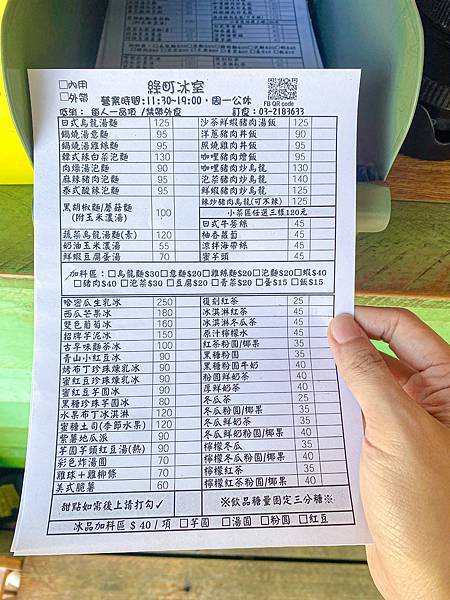 □內用 綠町冰室
□外帶 營業時間:11:30~19:00，週一公休 FB QR code
低消：每人一品項/禁帶外食 訂食：03-2183633
日式烏龍湯麵 125 沙茶鮮蝦豬肉湯飯 125
鍋燒湯意麵 95 洋蔥豬肉丼飯 90
鍋燒湯雞絲麵 95 照燒雞肉丼飯 95
韓式辣白菜泡麵 130 咖哩豬肉燴飯 95
肉燥湯泡麵 90 咖哩豬肉炒烏龍 130
麻辣豬肉泡麵 95 泡菜豬肉炒烏龍 140
泰式酸辣泡麵 95 鮮蝦豬肉炒烏龍 125
黑胡椒麵/蘑菇麵 (附玉米濃湯) 100 辣炒豬肉烏龍(可不辣) 125
小菜區任選三樣120元
日式牛蒡絲 45
蔬菜烏龍湯麵(素) 120 柚香蘿蔔 45
奶油玉米濃湯 55 涼拌海帶絲 45
鮮蝦豆腐蛋湯 70 蜜芋頭 45
加料區：□烏龍麵$30□意麵$20□雞絲麵$20□泡麵$20□蝦$40
□豬肉$40 □泡菜$30 □豆腐$20 □青菜$20 □蛋$15 □飯$15
哈密瓜生乳冰 250 復刻紅茶 25
西瓜芒果冰 180 冰淇淋紅茶 45
雙色葡萄冰 160 冰淇淋冬瓜茶 45
招牌芋泥冰 150 原汁檸檬水 45
古早味麵茶冰 100 紅茶粉圓/椰果 35
青山小紅豆冰 90 黑糖粉圓 35
烤布丁珍珠煉乳冰 90 黑糖粉圓牛奶 40
蜜紅豆珍珠煉乳冰 90 粉圓鮮奶茶 40
蜜紅豆芋圓冰 90 厚鮮奶茶 40
黑糖珍珠芋圓冰 80 冬瓜茶 25
水果布丁冰淇淋 120 冬瓜粉圓/椰果 35
蜜糖土司(季節水果) 120 冬瓜鮮奶茶 35
紫薯地瓜派 90 冬瓜鮮奶粉圓/椰果 40
芋圓芋頭紅豆湯(熱) 90 檸檬冬瓜 35
彩色炸湯圓 70 檸檬冬瓜粉圓/椰果 40
雞球+雞柳條 70 檸檬紅茶 35
美式脆薯 60 檸檬紅茶粉圓/椰果 40
甜點如需後上請打勾✓ ※飲品糖量固定三分糖※
冰品加料區 $ 40 / 項 □芋圓 □湯圓 □粉圓 □紅豆